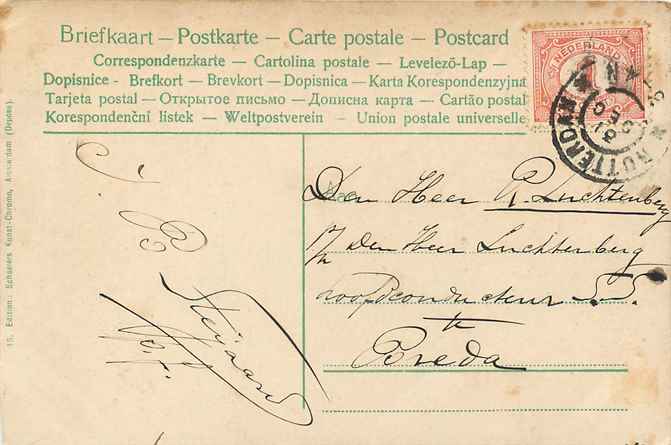 Briefkaart — Postkarte — Carte postale — Postcard
Correspondenzkarte — Cartolina postale — Levelező-Lap —
Dopisnice - Brefkort - Brevkort - Dopisnica - Karta Korespondenzyjna
Tarjeta postal — Открытое письмо — Дописна карта — Cartão postal
Korespondenční lístek — Weltpostverein — Union postale universelle
NEDERLAND
ROTTERDAM
Den Heer R. Luchtenberg
p/a den Heer Luchtenberg
Hoofdconducteur S.S.
te
Breda
J. B.
15. Edition: Schaefers Kunst-Chromo, Amsterdam (Dépose).